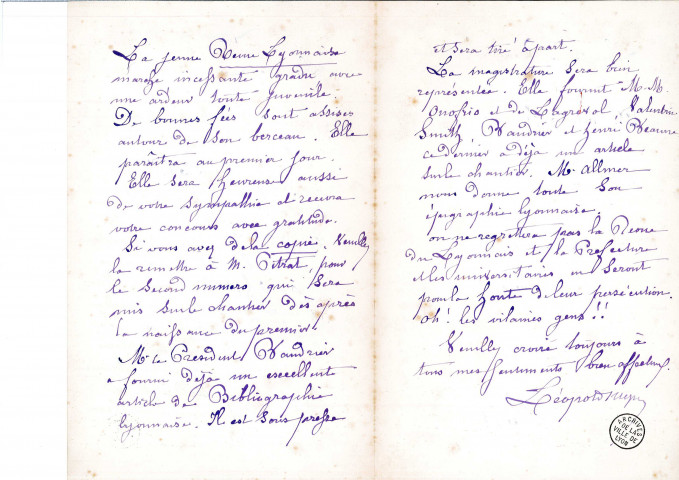 La jeune Revue Lyonnaise
marche incessante gradu avec
une ardeur toute juvénile.
De bonnes fées sont assises
autour de son berceau. Elle
paraîtra au premier jour.
Elle sera heureuse aussi
de votre sympathie et recevra
votre concours avec gratitude.
Si vous avez de la copie, Veuillez
la remettre à M. Pitrat, pour
le second numero qui sera
mis sur le chantier dès après
la naissance du premier
Mr le President Vaudrier
a fourni déja un excellent
article de Bibliographie
lyonnaise. Il est sous presse
et sera tiré à part.
La magistrature sera bien
représentée. Elle fournit M.M.
Onofrio et de Lagrevol, Valentin
Smith, Vaudrier et henri Beaune
ce dernier a déjà un article
sur le chantier. Mr. Allmer
nous donne toute son
épigraphie lyonnaise.
on ne regrettera pas la Revue
du Lyonnais et la Préfecture
et les universitaires en seront
pour la honte de leur persécution.
Oh! les vilaines gens!!
Veuillez croire toujours à
tous mes sentiments bien affectueux.
Léopold Niepce
ARCHIVES
DE LA
VILLE DE
LYON